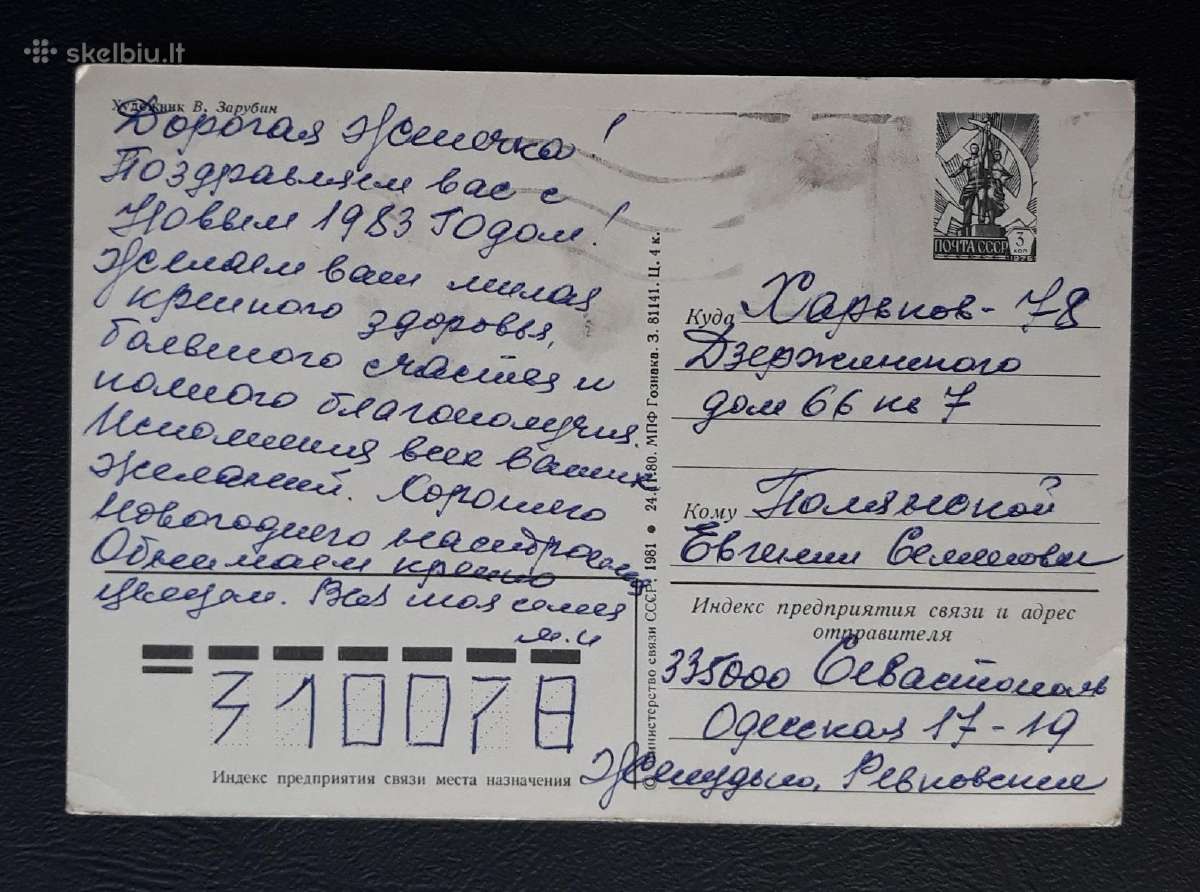 skelbiu.lt
Художник В. Зарубин
Дорогая Женечка!
Поздравляем вас с
Новым 1983 годом!
Желаем вам милая
крепкого здоровья,
большого счастья и
полного благополучия.
Исполнения всех ваших
желаний. Хорошего
новогоднего настроения
Обнимаем крепко
целуем. Вся моя семья
ПОЧТА СССР
3
КОП
1976
Куда Харьков-78
Дзержинского
дом 66 кв 7
Кому Полянской
Евгении Семеновне
Индекс предприятия связи и адрес
отправителя
335000 Севастополь
Одесская 17-19
310078
Индекс предприятия связи места назначения
© Министерство связи СССР. 1981 ● 24.11.80. МПФ Гознака. З. 81141. Ц. 4 к.